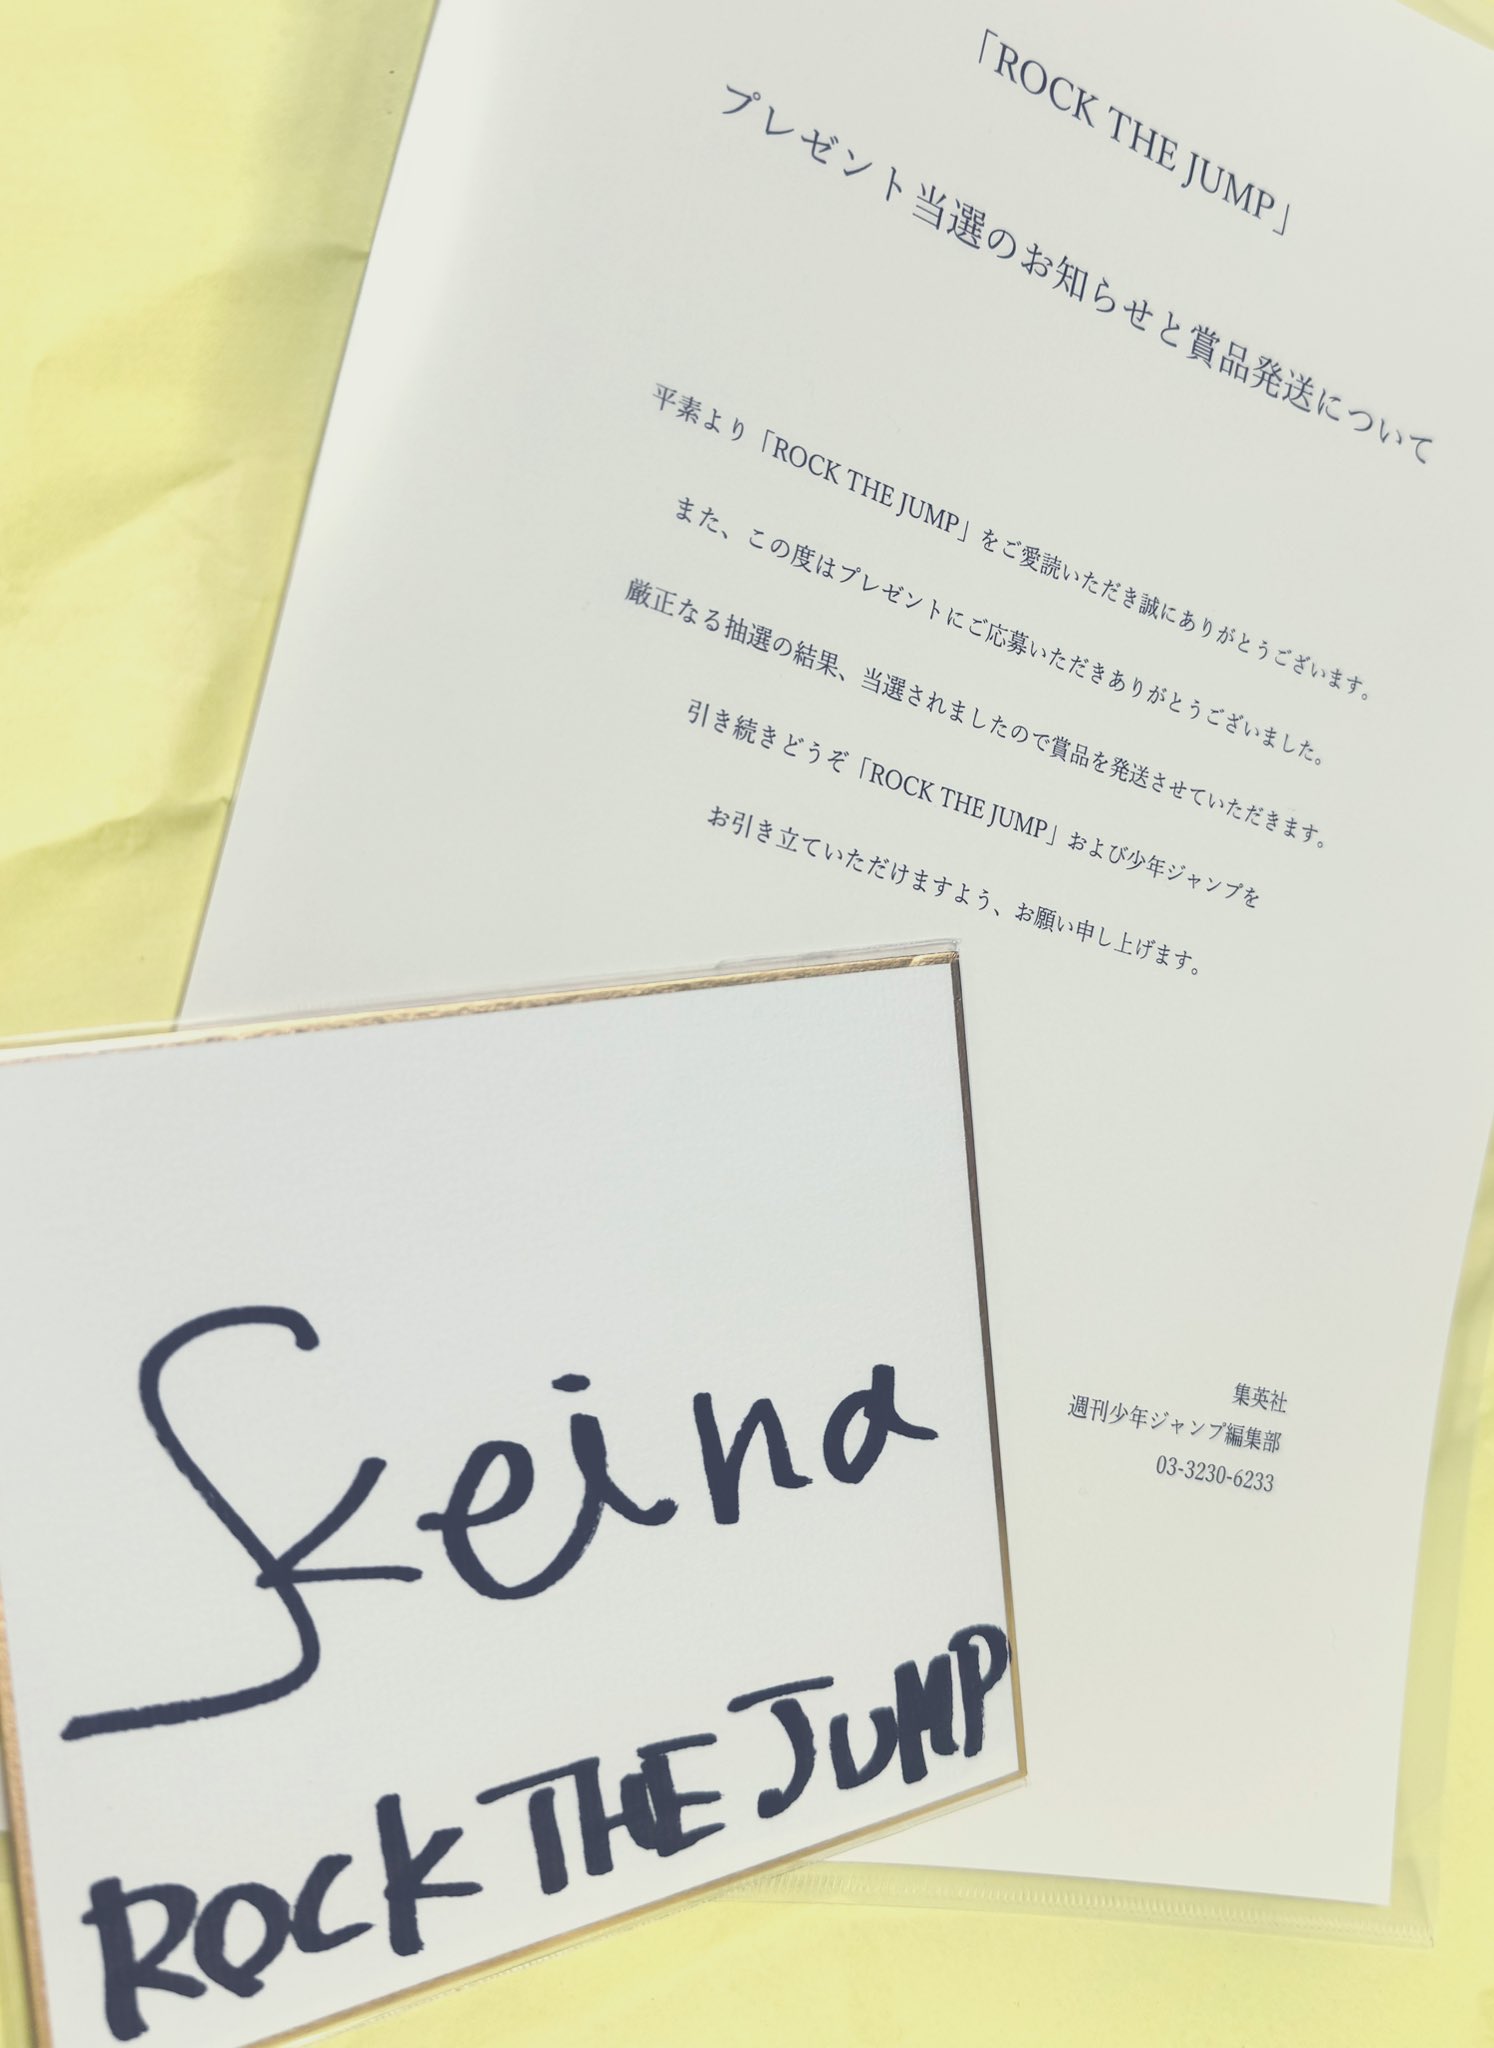 「ROCK THE JUMP」
プレゼント当選のお知らせと賞品発送について
平素より「ROCK THE JUMP」をご愛読いただき誠にありがとうございます。
また、この度はプレゼントにご応募いただきありがとうございました。
厳正なる抽選の結果、当選されましたので賞品を発送させていただきます。
引き続きどうぞ「ROCK THE JUMP」および少年ジャンプを
お引き立ていただけますよう、お願い申し上げます。
集英社
週刊少年ジャンプ編集部
03-3230-6233
Skeina
ROCK THE JUMP